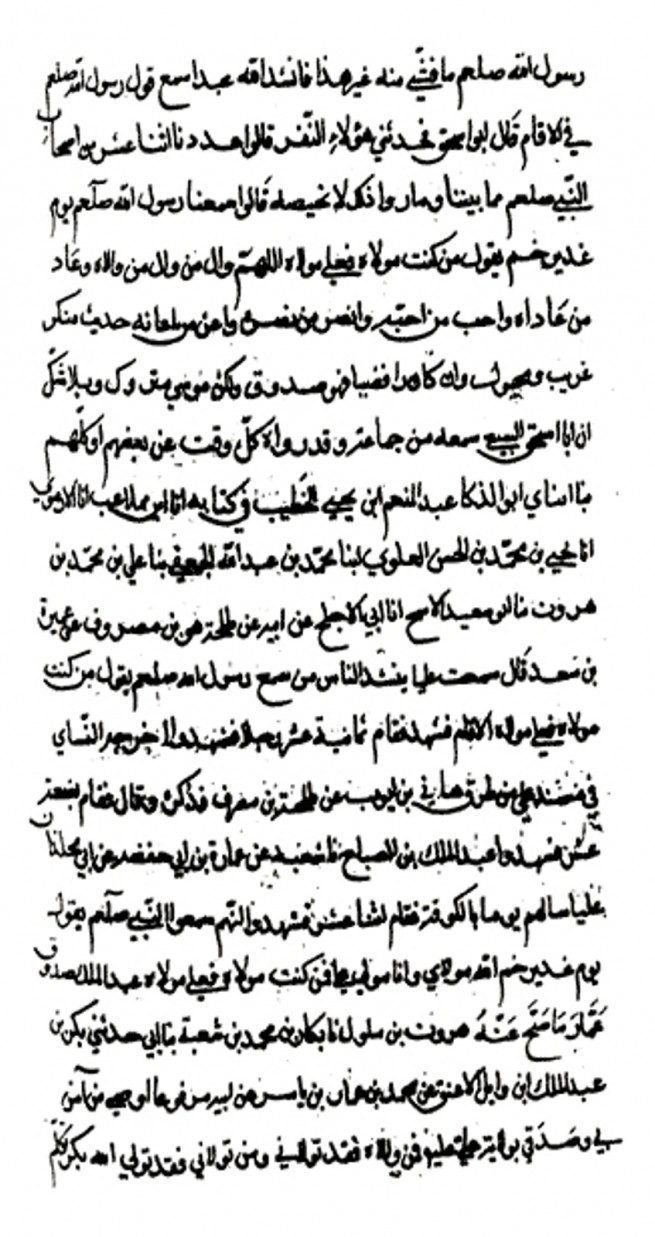 رسول الله صلعم ما فشى منه غير هذا فانشد الله عبدا سمع قول رسول الله صلعم
في الا قام قال ابو اسحق فحدثني هؤلاء النفر قالوا عددنا اثنا عشر من اصحاب
النبي صلعم مما بيننا وما روا ذلك لا نحيصه قالوا سمعنا رسول الله صلعم يوم
غدير خم يقول من كنت مولاه فعلي مولاه اللهم وال من وال من والاه وعاد
من عاداه واحب من احبه وانصر من نصره واعن من اعانه حديث منكر
غريب وان كان رافضيا فهو صدوق ولكن موسى متروك وبلا شك
ان ابا اسحق السبيعي سمعه من جماعة وقد رواه كل وقت عن بعضهم او كلهم
ابو الذكا عبد المنعم ابن يحيى الخطيب في كتابه انا ابن ملاعب انا الارموي
انا يحيى بن محمد بن الحسن العلوي ابنا محمد بن عبد الله الجعفي بنا علي بن محمد بن
هروت نا ابو سعيد الاشج انا ابن الاجلح عن ابيه عن طلحة بن مصروف عن عميرة
بن سعد قال سمعت عليا ينشد الناس من سمع رسول الله صلعم يقول من كنت
مولاه فعلي مولاه الا قام فشهد فقام ثمانية عشر رجلا فشهدوا اخرجه النساي
في مسند علي من طرق هاني بن ايوب عن طلحة بن مصرف فذكره وقال فقام بضعة
عشر فشهدوا عبد الملك ابن الصباح نا شعبة عن عمارة بن ابي حفصه عن ابي مجلز ان
عليا سالهم يوما بالكوفة فقام اثنا عشر فشهدوا انهم سمعوا النبي صلعم يقول
يوم غدير خم الله مولاي وانا مولى علي فمن كنت مولاه فعلي مولاه عبد الملك صدوق
هروت بن سلول نا بكار بن محمد بن شعبة نا ابي حدثني بكر بن
عبد الملك ابن وايل الاعنق عن محمد بن عمار بن ياسر عن ابيه مرفوعا اوصي من آمن
بي وصدقني بولاية علي فمن والاه فقد تولاني ومن تولاني فقد تولى الله بكر